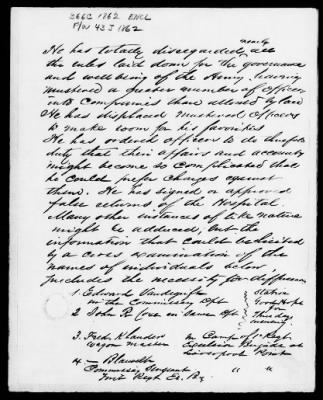 366C 1862 ENCL
F/W 43 J 1862
He has totally disregarded nearly all
the rules laid down for the governance
and well being of the Army, having
mustered a greater number of officers
into Companies than allowed by law
He has displaced mustered officers
to make room for his favorites
He has ordered officers to do
duty that their affairs and accounts
might become so Complicated that
he could prefer charges against
them. He has signed or approved
false returns of the Hospital.
Many other instances of like nature
might be adduced, but the
information that could be elicited
by a cross examination of the
names of individuals below,
precludes the necessity for
1. Edward
in the Commissary Dpt
2 John R in same Dpt
Station
Good Hope
for
Thursday
evening.
3. Fredk Klander
Wagon Master
in Camp of 1st Regt
Excelsior Brigade at
Liverpool Point
4. — Blauvelt
Commissary Sergeant
First Regt Ex. Br.
" "